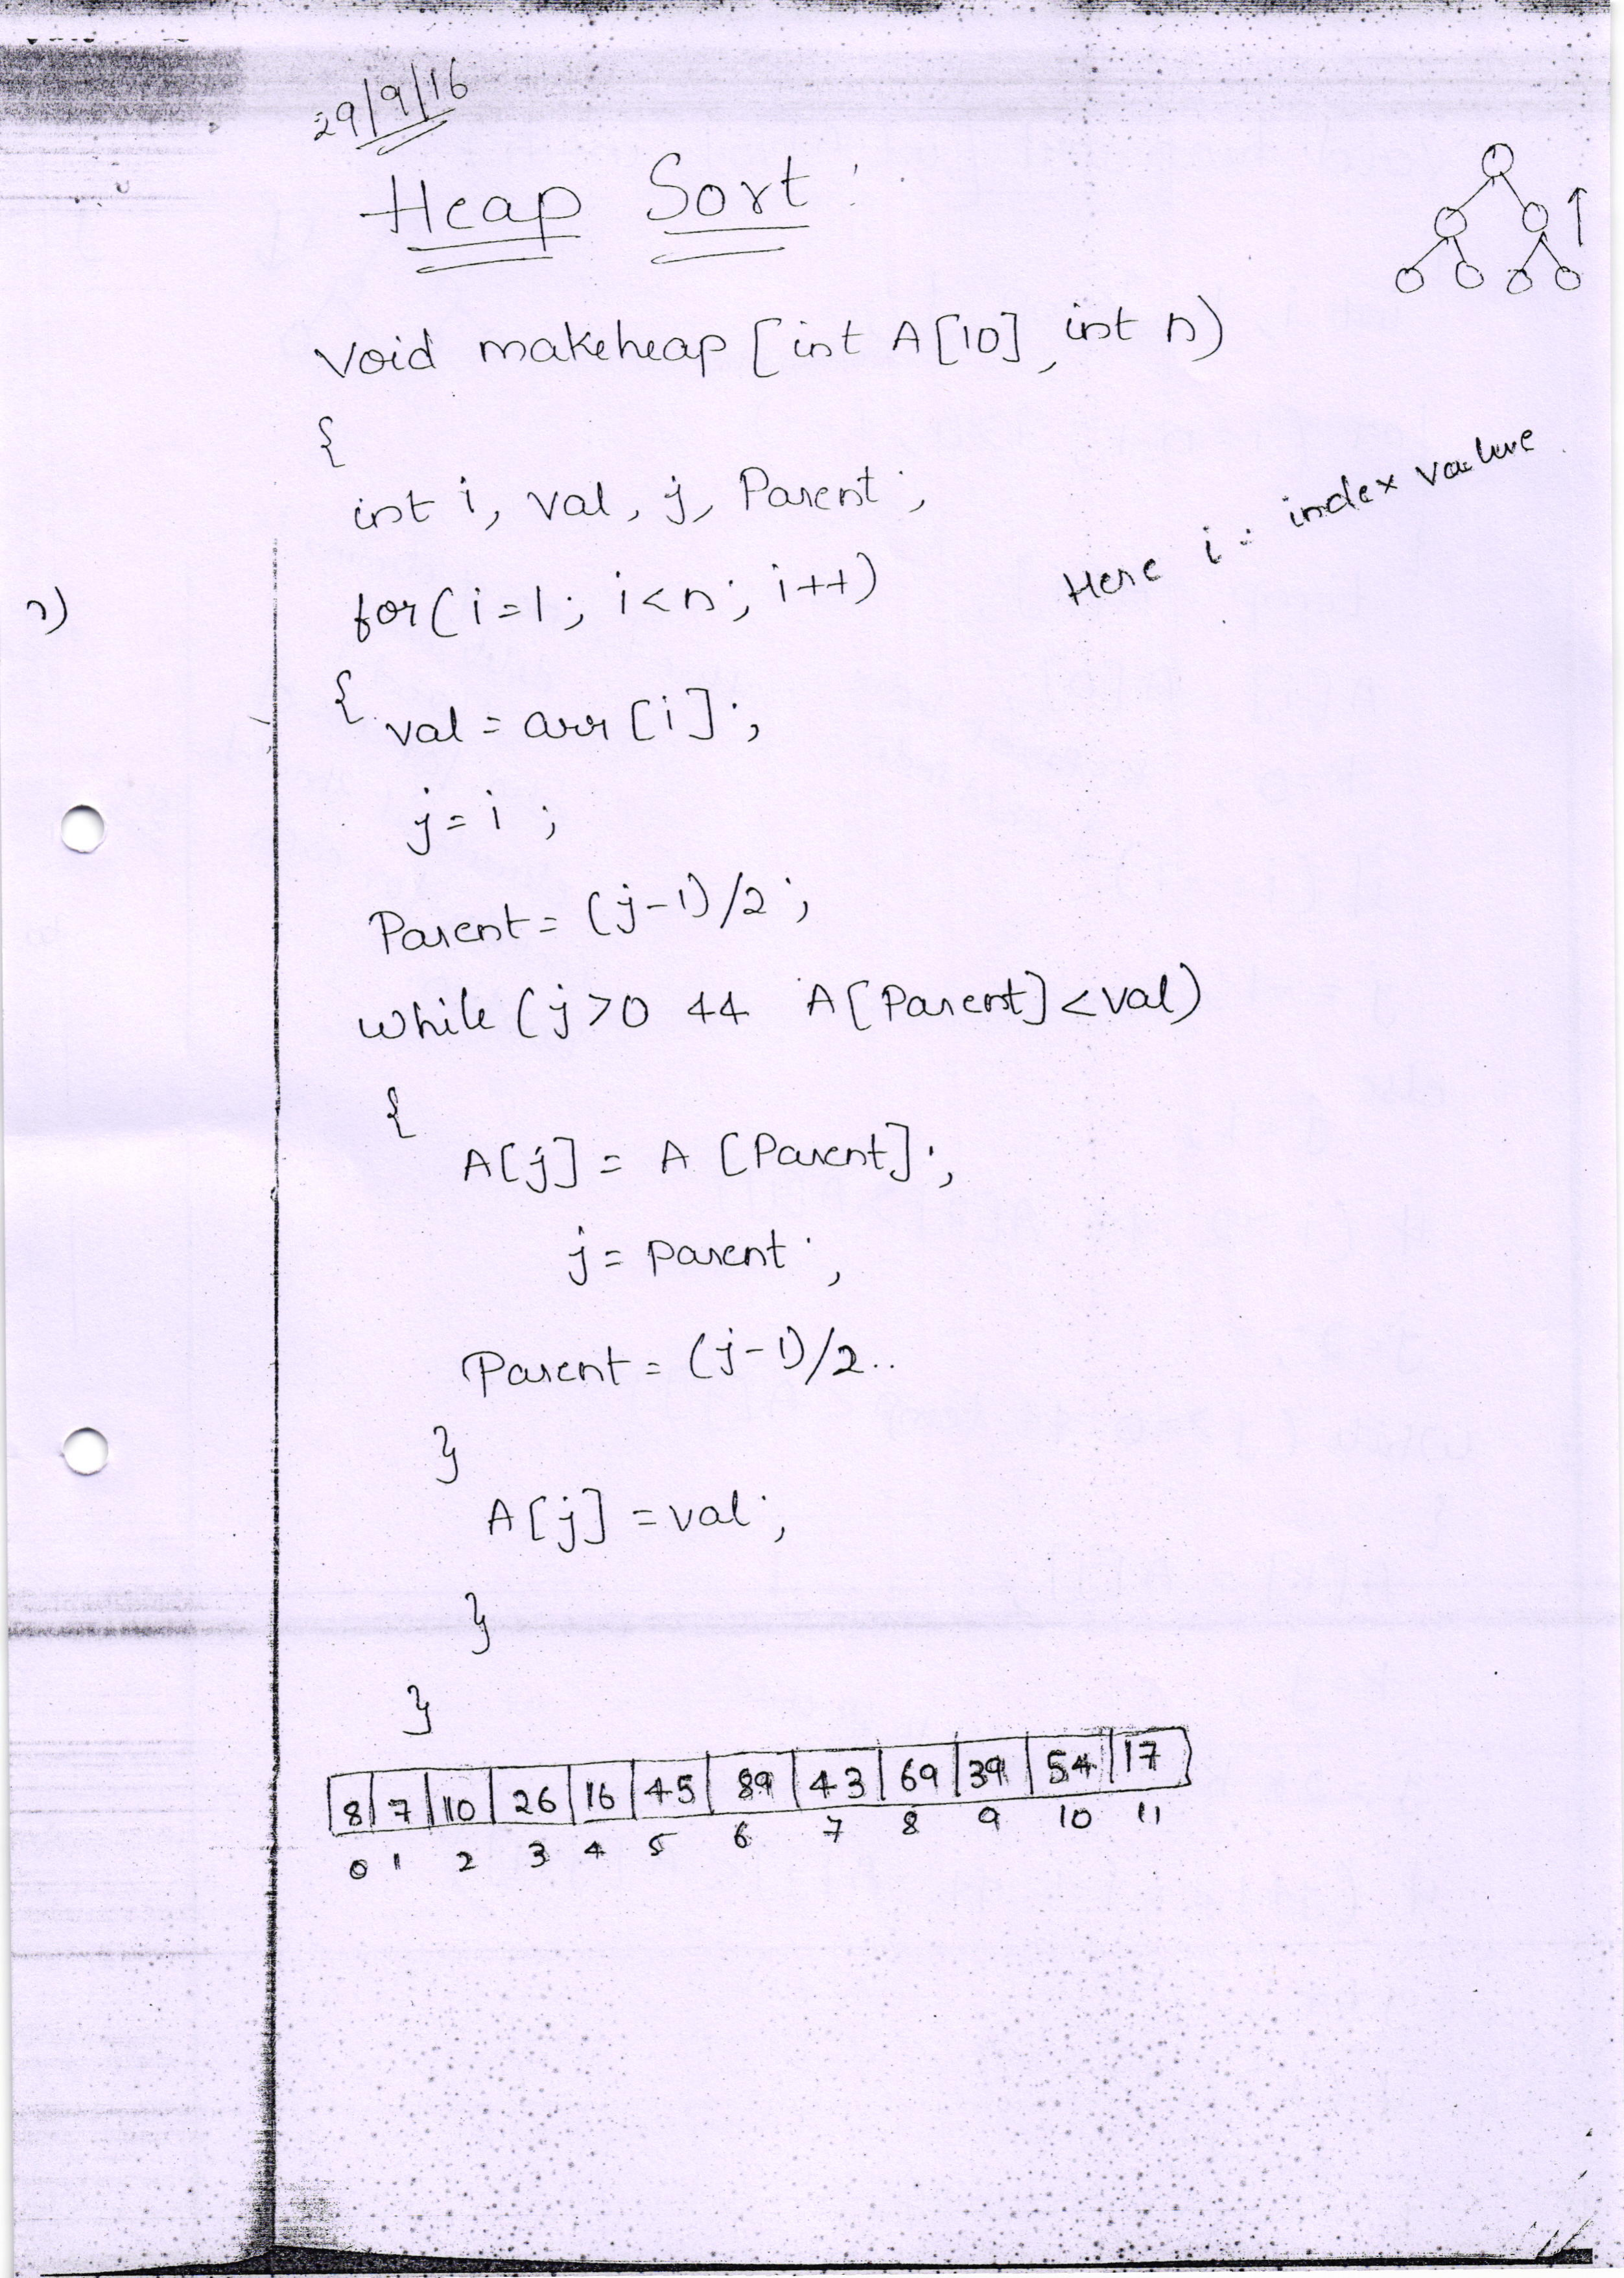 29/9/16
Heap Sort :
Void makeheap [int A[10], int n)
{
int i, val, j, Parent ;
Here i : index value
for(i=1; i<n; i++)
{
val = arr [i] ;
j = i ;
Parent = (j-1)/2 ;
while (j>0 && A[Parent] <val)
{
A[j] = A [Parent] ;
j = parent ;
Parent = (j-1)/2..
}
A[j] = val ;
}
}
8 7 10 26 16 45 89 43 69 39 54 17
0 1 2 3 4 5 6 7 8 9 10 11